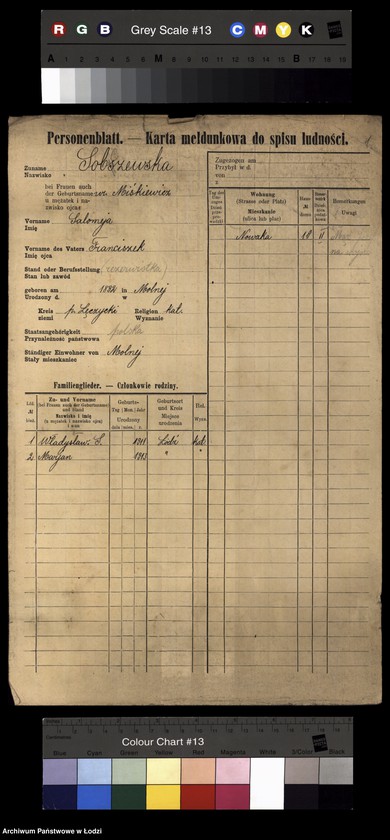 R G B Grey Scale #13 C M Y K
A 1 2 3 4 5 6 M 8 9 10 11 12 13 14 15 B 17 18 19
Personenblatt. — Karta meldunkowa do spisu ludności.
Zuname
Nazwisko Sobszewska
bei Frauen auch
der Geburtsname
u mężatek i na-
zwisko ojca Miśkiewicz
Vorname
Imię Salomeja
Vorname des Vaters
Imię ojca Franciszek
Stand oder Berufsstellung
Stan lub zawód
geboren am
Urodzony d. 1892 in
w Molnej
Kreis
ziemi p. Łęczycki Religion
Wyznanie kat.
Staatszugehörigkeit
Przynależność państwowa polska
Ständiger Einwohner von
Stały mieszkaniec Molnej
Zugezogen am
Przybył w d.
von
z.
Wohnung
(Strasse oder Platz)
Mieszkanie
(ulica lub plac)
Bemerkungen
Uwagi
Nowaka 18 II
Familienglieder. — Członkowie rodziny.
Zu- und Vorname
Nazwisko i imię
Geburts-
Tag Mon. Jahr
Urodzony
Geburtsort
und Kreis
Miejsce
urodzenia
Rel.
Wyzn.
1 Władysław S. 1911 Łódź kat.
2 Maryan 1913 " "
Colour Chart #13
Blue Cyan Green Yellow Red Magenta White 3/Color Black
Archiwum Państwowe w Łodzi